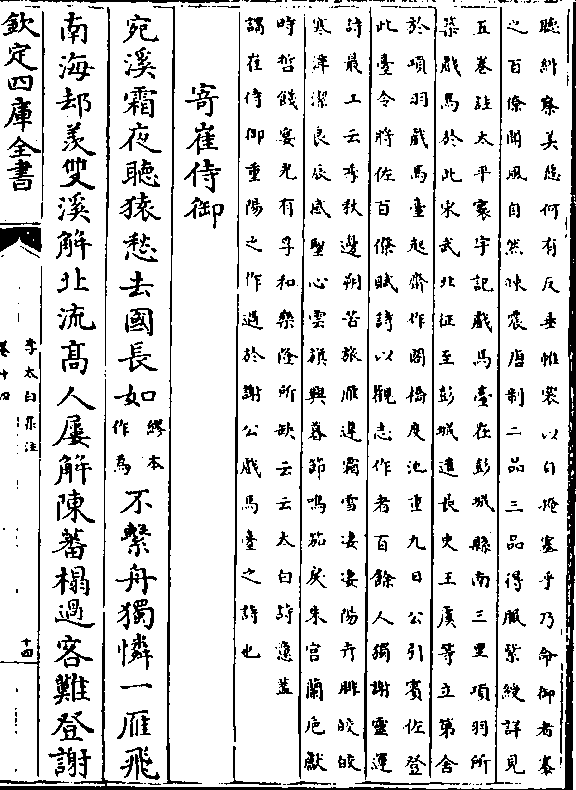 聽糾察美惡何有反垂帷裳以自掩塞乎乃命御者褰
之百僚聞風自然悚震唐制二品三品得服紫綬詳見
五卷註太平寰宇記戲馬臺在彭城縣南三里項羽所
築戲馬於此宋武北征至彭城遣長史王虞等立第舍
於項羽戲馬臺起齋作閣橋度池重九日公引賓佐登
此臺令將佐百僚賦詩以觀志作者百餘人獨謝靈運
詩最工云季秋邊朔苦旅雁違霜雪凄凄陽卉腓皎皎
寒潭潔良辰感聖心雲旗興暮節鳴笳戾朱宮蘭巵獻
時哲餞宴光有孚和樂隆所缺云云太白詩意蓋
謂崔侍御重陽之作過於謝公戲馬臺之詩也
寄崔侍御
宛溪霜夜聽猿愁去國長如繆本作為不繫舟獨憐一雁飛
南海却羨雙溪解北流高人屢解陳蕃榻過客難登謝
欽定四庫全書
李太白集注
卷十四
十四